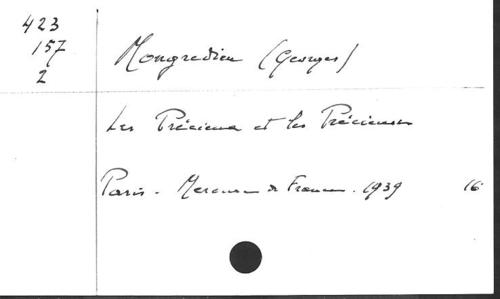 423
157
2
Mongredien (Georges)
Les Précieux et les Précieuses
Paris - Mercure de France. 1939 16